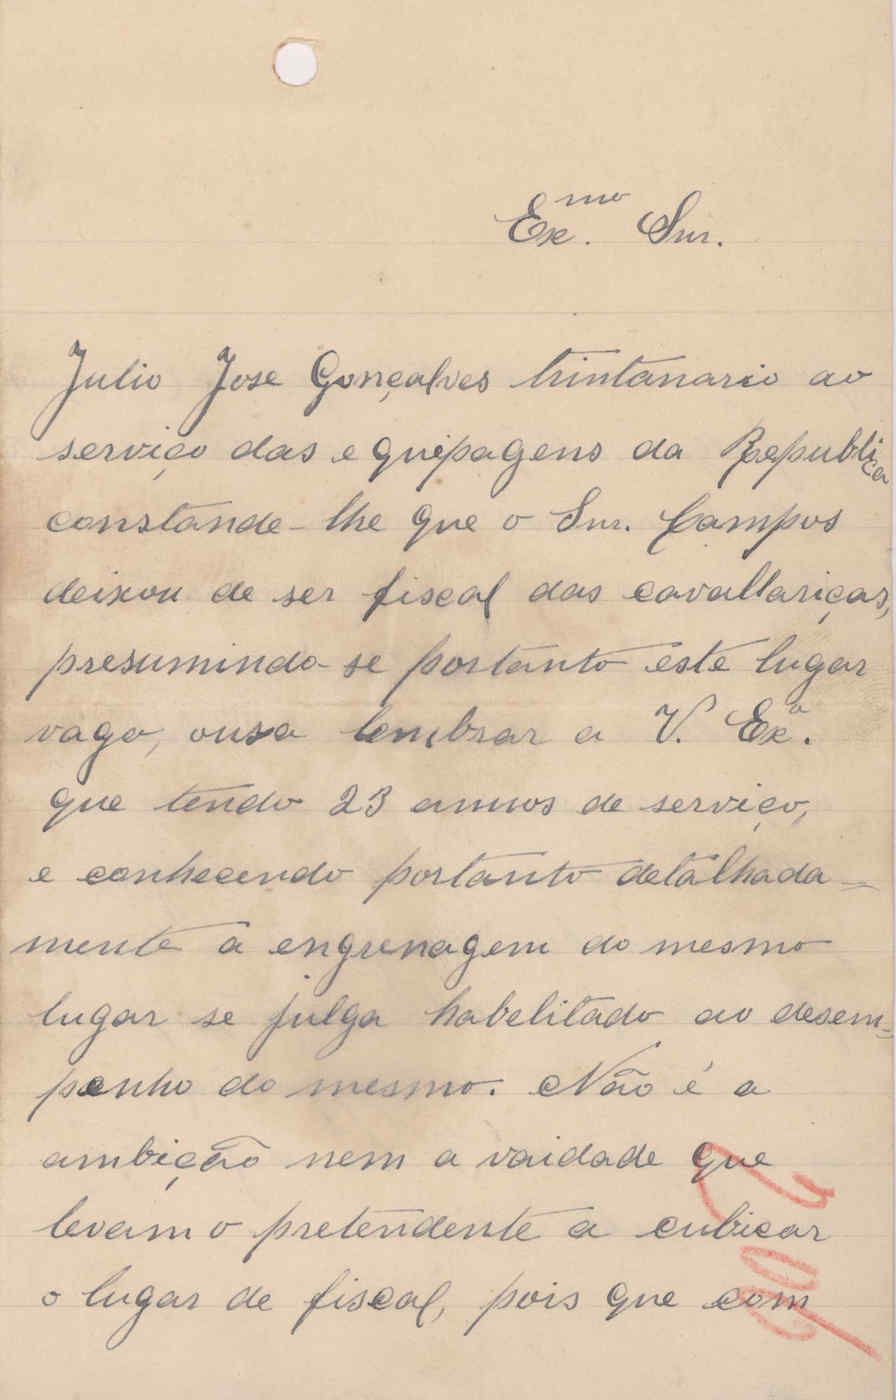 Ex.mo Snr.
Julio Jose Gonçalves trintanario ao
serviço das equipagens da Republica
constando-lhe que o Snr. Campos
deixou de ser fiscal das cavallariças,
presumindo-se portanto este lugar
vago, ousa lembrar a V. Ex.a
que tendo 23 annos de serviço,
e conhecendo portanto detalhada=
mente a engrenagem do mesmo
lugar se julga habelitado ao desem=
penho do mesmo. Não é a
ambição nem a vaidade que
levam o pretendente a cubicar
o lugar de fiscal, pois que com